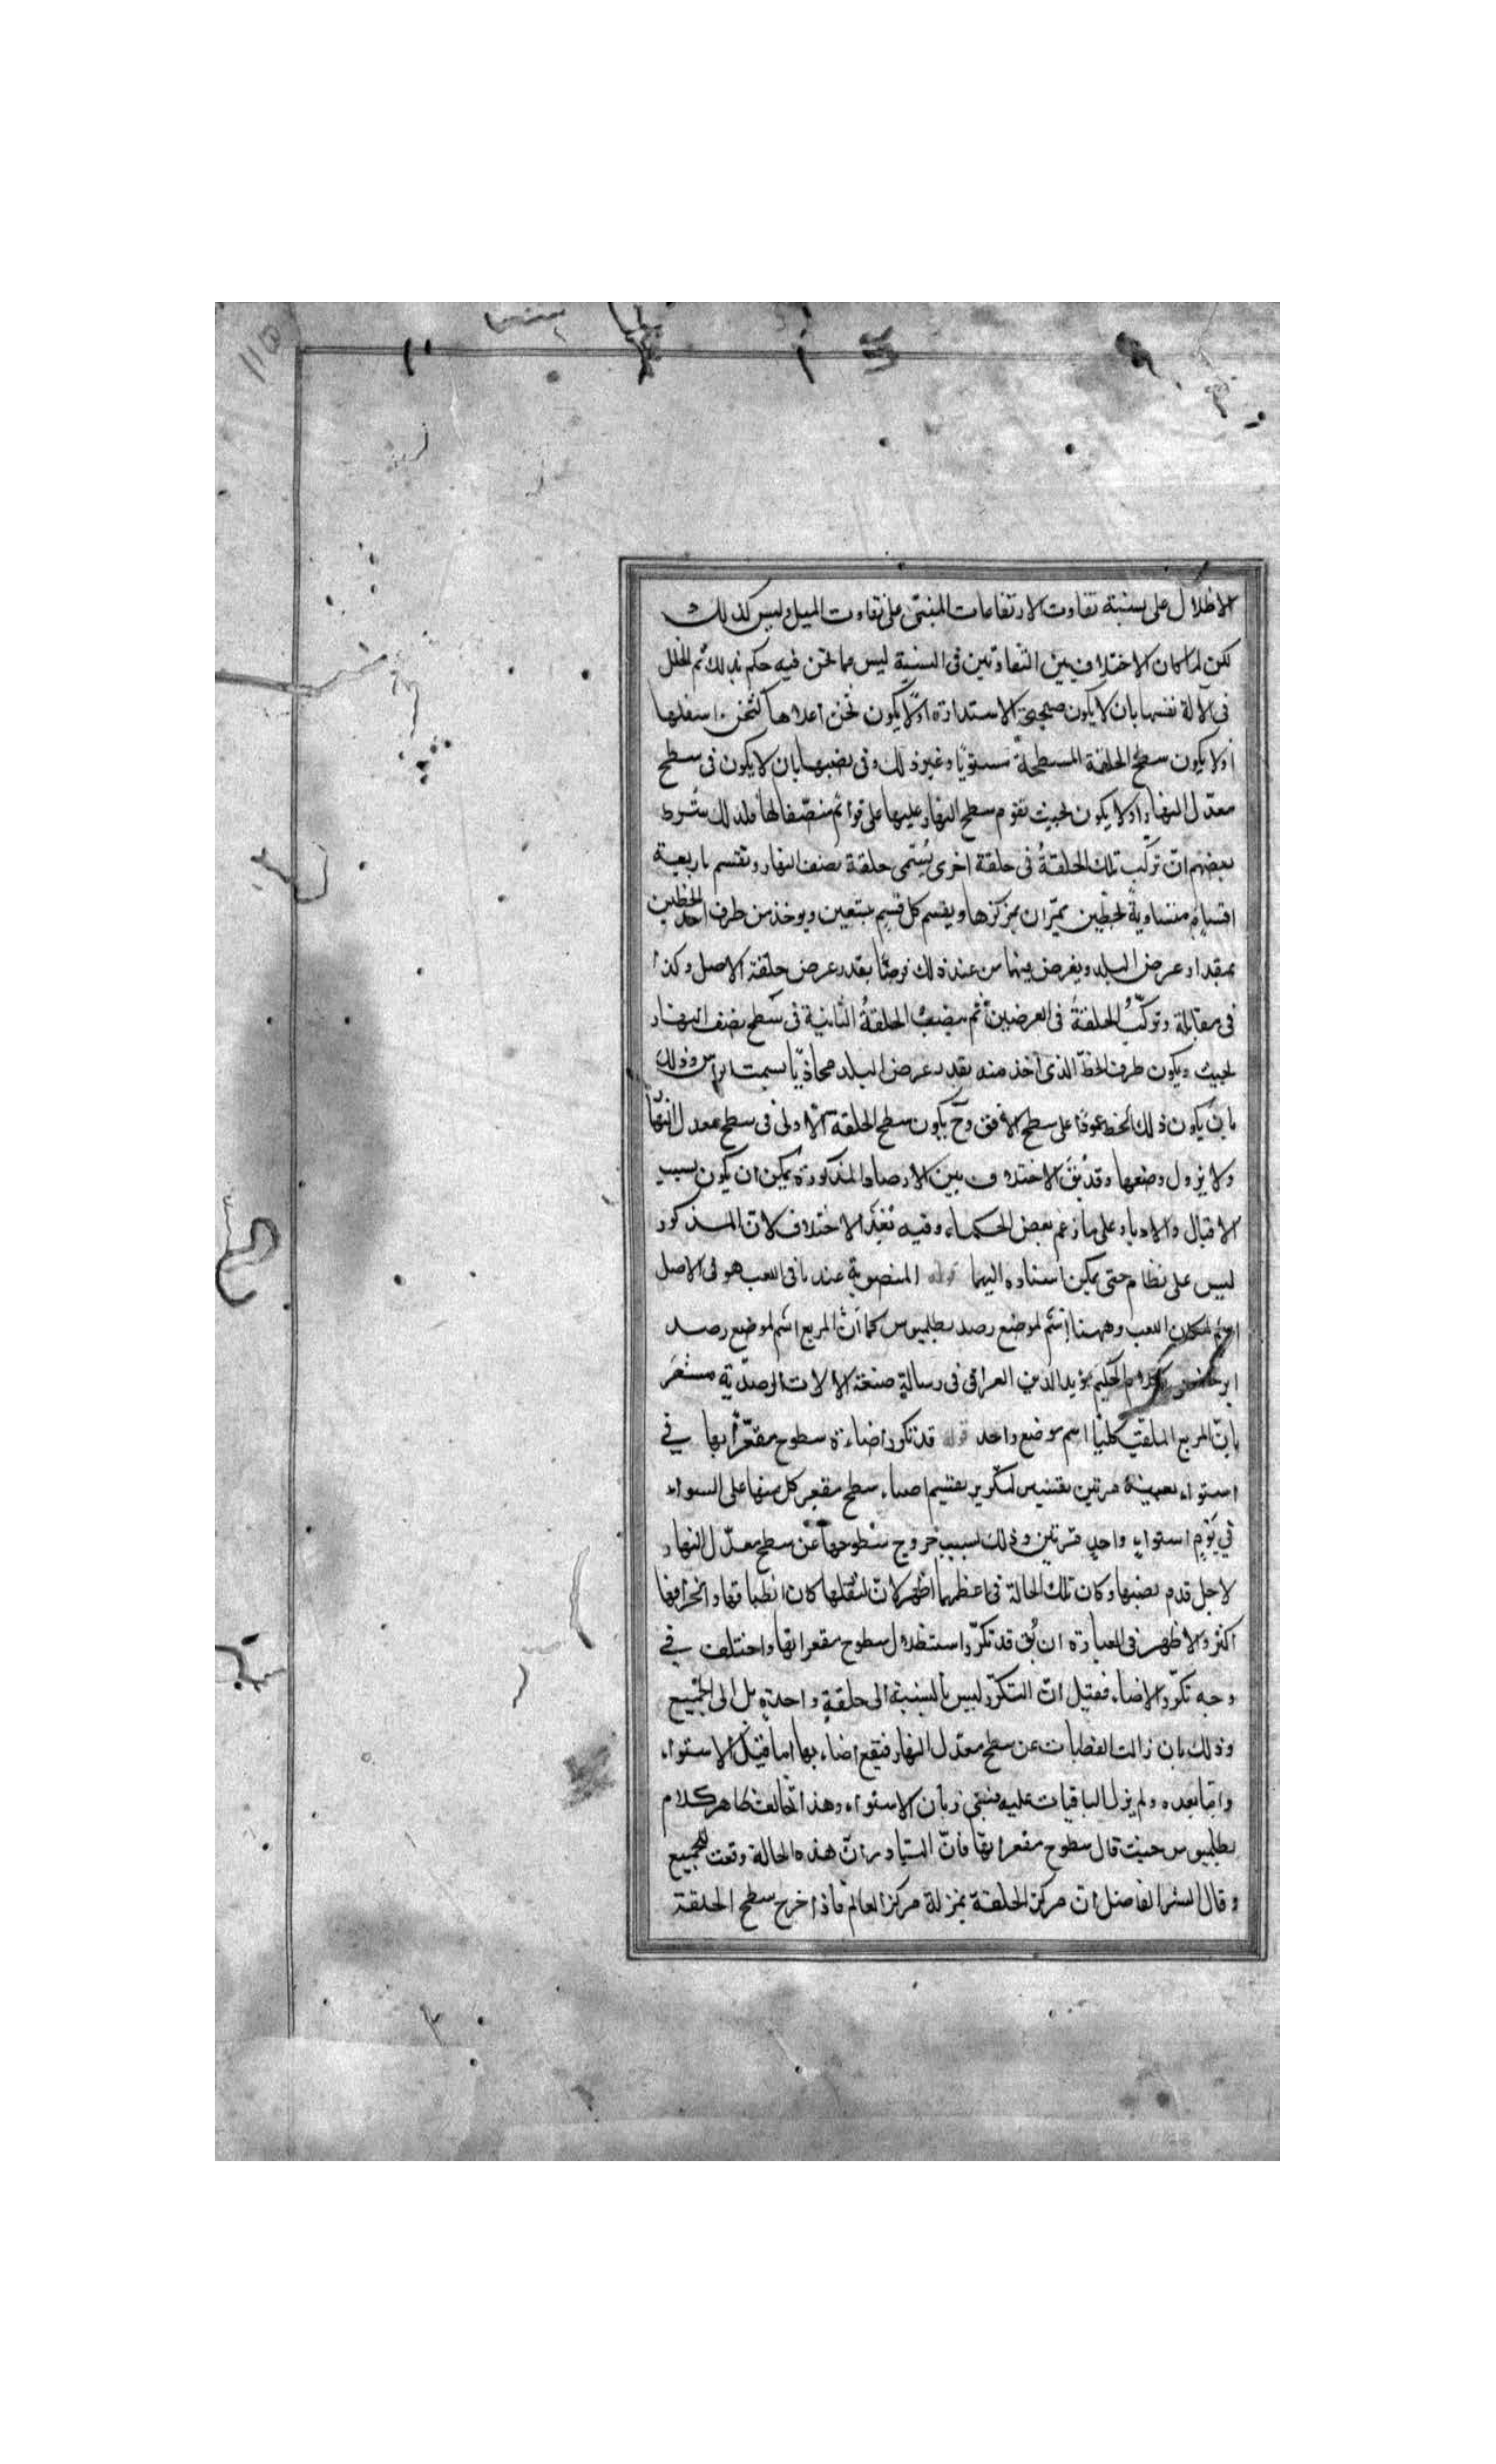 الاظلال على نسبة تفاوت الارتفاعات المبتنى على تفاوت الميل وليس كذلك
لكن لما كان الاختلاف بين التفاوتين فى النسبة ليس مما نحن فيه حكم بذلك ثم الخلل
فى آلة نفسها بان لا يكون صحيحة الاستدارة او لا يكون ثخن اعلاها كثخن اسفلها
او لا يكون سطح الحلقة المسطحة مستويا وغير ذلك وفى نصبها بان لا يكون فى سطح
معدّل النهار او لا يكون بحيث يقوم سطح النهار عليها على قوائم منصّفا لها فلذلك شرط
بعضهم انّ تركّب تلك الحلقةُ فى حلقة اخرى يُسمّى حلقة نصف النهار وتقسم باربعة
اقسام متساوية بخطّين يمرّان بمركزها ويقسم كل قسم بتسعين ويوخذ من طرف احد الخطين
بمقدار عرض البلد ويفرض بينها من عند ذلك فرضًا بقدر عرض حلقة الاصل وكذا
فى مقابلة وتركّبُ الحلقةُ فى العرضين ثم ينصبُ الحلقةُ الثانية فى سطح نصف النهار
بحيث ويكون طرف الخطّ الذى اخذ منه بقدر عرض البلد محاذيّا لسمت الراس وذلك
بان يكون ذلك الخط عمودًا على سطح الافق وح يكون سطح الحلقة الاولى فى سطح معدل النهار
ولا يزول وضعها وقد يُق الاختلاف بين الارصاد المذكورة يمكن ان يكون بسبب
الاقبال والادبار على ما زعم بعض الحكماء وفيه بُعْدٌ لان الاختلاف المذكور
ليس على نظام حتى يمكن اسناده اليهما قوله المنصوبة عندنا فى اللعب هو فى الاصل
اسم لمكان اللعب وههنا اسم لموضع رصد بطلميوس كما انّ المربع اسم لموضع رصد
ابرخس وكلام الحكيم مؤيد الدين العراقى فى رسالة صنعة الالات الرصدية مشعر
بانّ المربع الملقب كليّا اسم موضع واحد قوله قد تكرر اضاءة سطوح مقعّراتها في
استواء بعينة مرتين يقتضيى لتكرير تقتيم اضاء سطح مقعر كل منها على السواء
في يوم استواء واحد مرتين وذلك بسبب خروج سطوحها عن سطح معدّل النهار
لاجل قدم نصبها وكان تلك الحالة فى اعظمهما اظهر لانّ لثقلها كان انطباقها وانحرافها
اكثر والاظهر فى العبارة ان يُق قد تكرّر استظلال سطوح مقعراتها واختلف في
وجه تكرّر الاضاء فقيل انّ التكرّر ليس بالنسبة الى حلقةٍ واحدةٍ بل الى الجميع
وذلك بان زالت القطبات عن سطح معدّل النهار فيقع اضاء بها اما قبل الاستواء
وامّا بعده ولم يزل الباقيات عليه فيبقى زمان الاستواء وهذا تخالف ظاهر كلام
بطلميوس حيث قال سطوح مقعراتها فانّ المتبادر انّ هذه الحالة وقعت للجميع
وقال الشر الفاضل انّ مركز الحلقة بمنزلة مركز العالم فاذا خرج سطح الحلقة